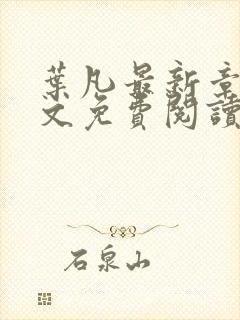 葉凡最新章
文免費閱讀
石泉山